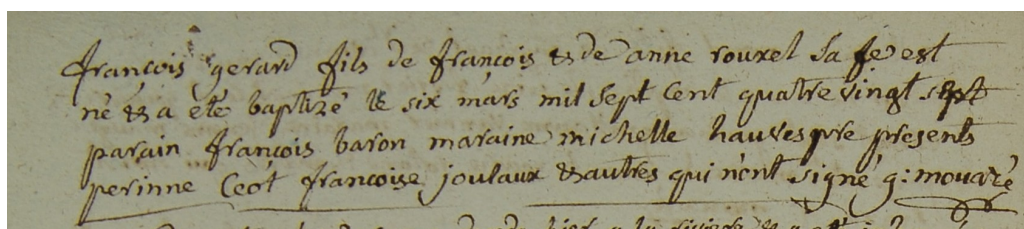 françois gerard fils de françois & de anne rouxel sa fe est
né & a été baptizé le six mars mil sept cent quatre vingt sept
parain françois baron maraine michelle hauvespre presents
perinne Ceot françoise joulaux & autres qui n'ont signé g: mouazé